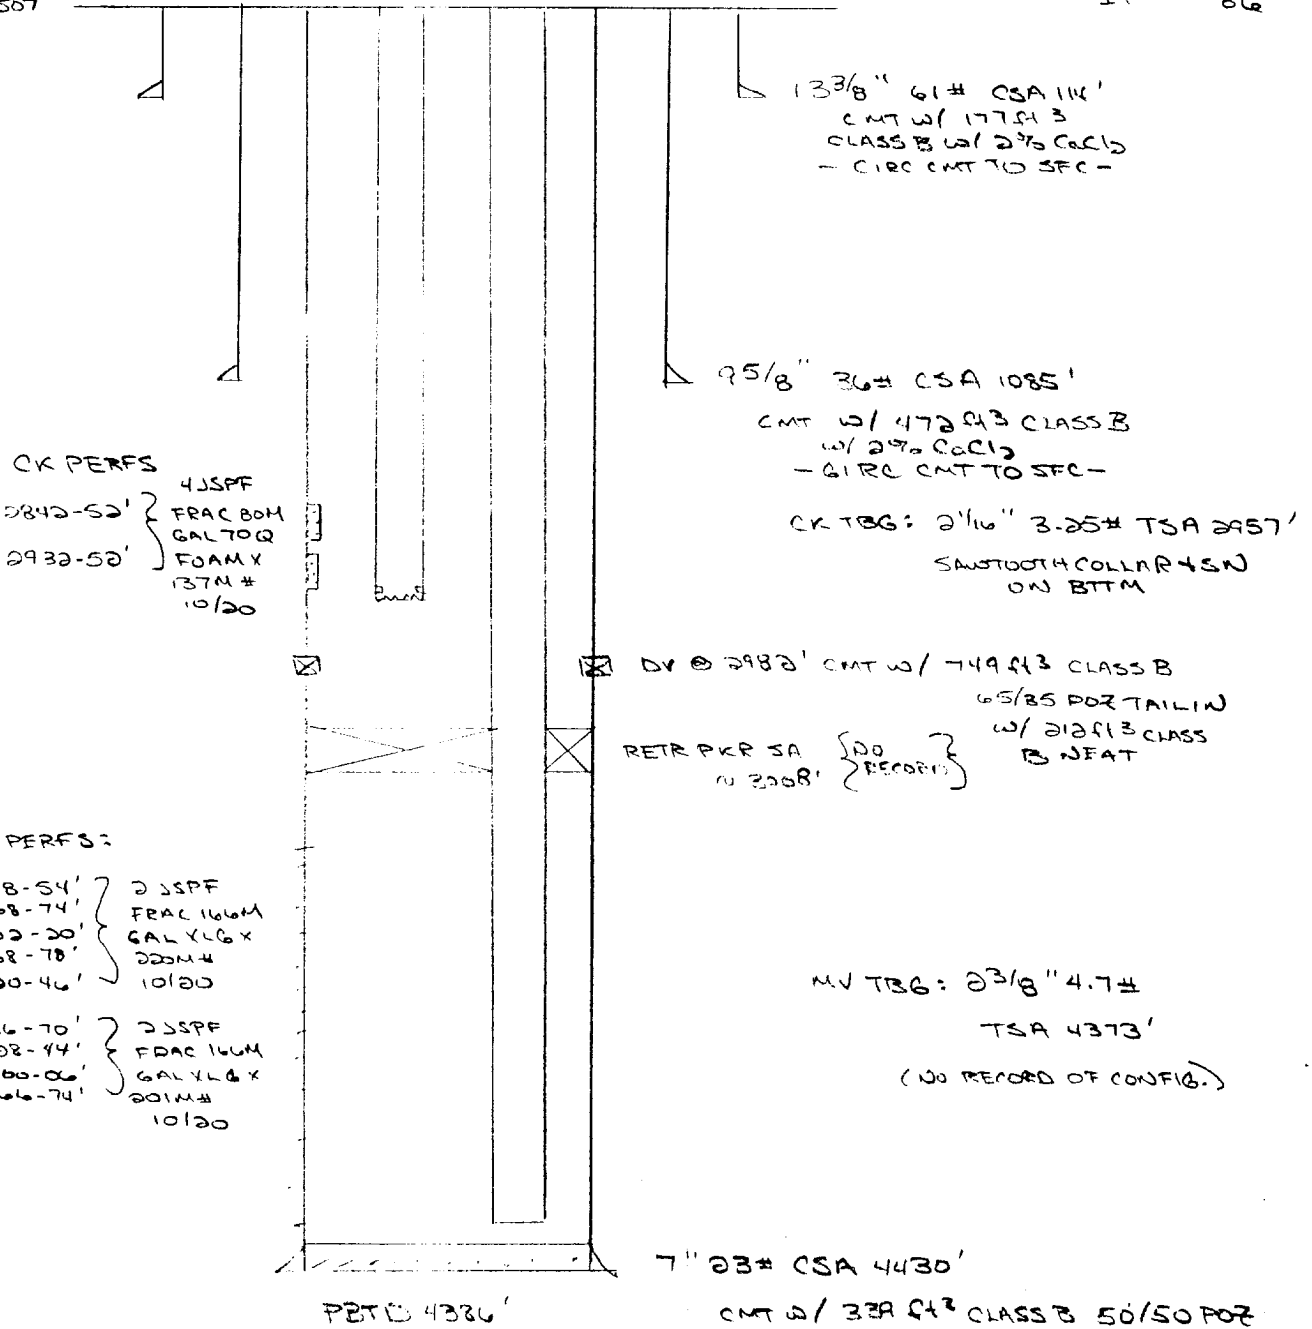 507
06
13 3/8" 61# CSA 114'
CMT W/ 177 ft3
CLASS B W/ 2% CaCl2
- CIRC CMT TO SFC -
9 5/8" 36# CSA 1085'
CMT W/ 472 ft3 CLASS B
W/ 2% CaCl2
- CIRC CMT TO SFC -
CK PERFS
4 JSPF
2842-52' FRAC 80M
GAL 70Q
2932-52' FOAM X
137M #
10/20
CK TBG: 2 1/16" 3.25# TSA 2957'
SAWTOOTH COLLAR & SN
ON BTTM
DV @ 2982' CMT W/ 749 ft3 CLASS B
65/35 POZ TAIL IN
W/ 212 ft3 CLASS
B NEAT
RETR PKR SA {NO RECORD}
~ 3208'
PERFS:
8-54' 2 JSPF
68-74' FRAC 166M
02-20' GAL XLG X
68-78' 220M#
20-46' 10/20
6-70' 2 JSPF
08-44' FRAC 166M
00-06' GAL XLG X
66-74' 201M#
10/20
MV TBG: 2 3/8" 4.7#
TSA 4373'
(NO RECORD OF CONFIG.)
7" 23# CSA 4430'
PBTD 4386'
CMT W/ 339 ft3 CLASS B 50/50 POZ